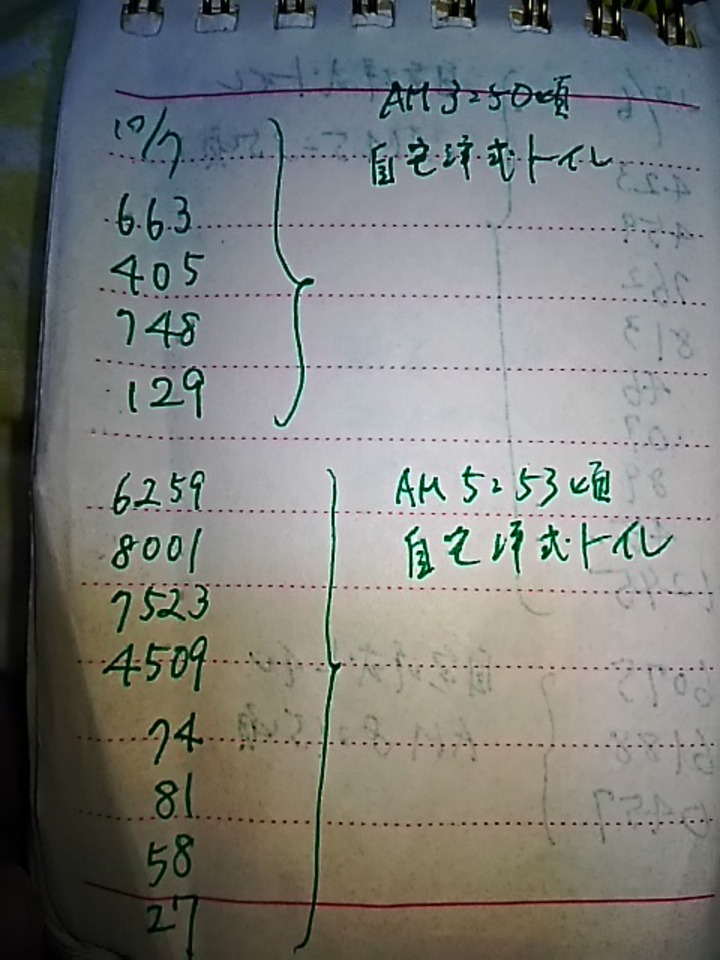 10/7
AM 3:50頃
自宅洋式トイレ
663
405
748
129
6259
8001
7523
4509
74
81
58
27
AM 5:53頃
自宅洋式トイレ